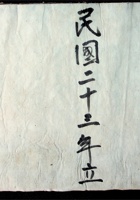 民國二十三年立